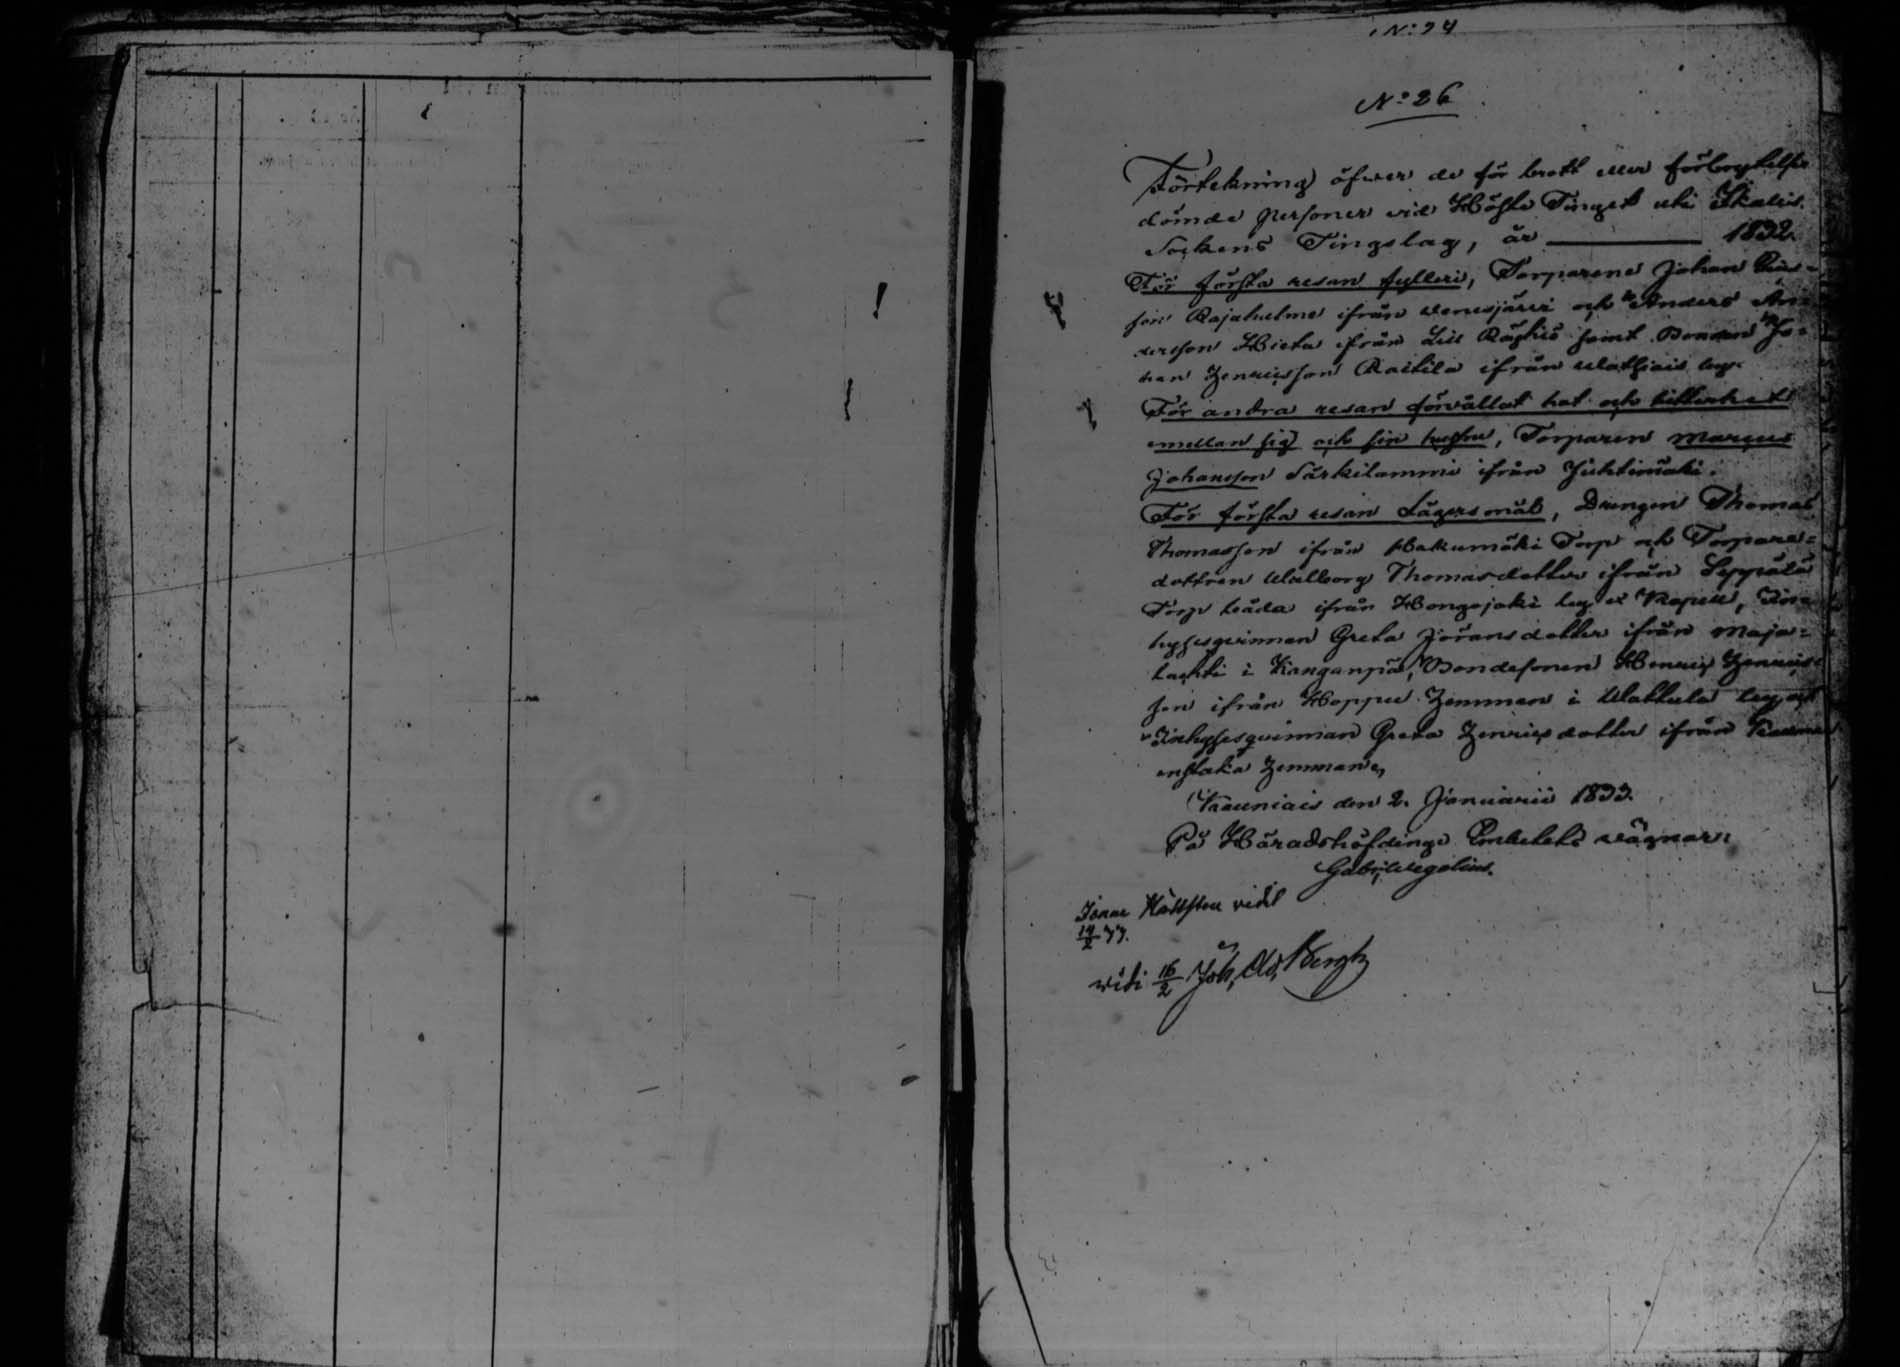 N:o 24
N:o 26
Förtekning öfwer de för brott eller förbrytelse
dömde personer vid Höste Tinget uti Ikalis
Sockens Tingslag, år 1832.
För första resan fylleri, Torparene Johan
son Rajahulme ifrån Wenesjärvi och Anders An=
dersson Hieta ifrån Lill Röyhiö samt Bonden Jo=
han Henricsson Raitila ifrån
För andra resan förvållat hat och bitterhet
emellan sig och sin hustru, Torparen Marcus
Johansson Särkilammi ifrån Juhtimäki.
För första resan Lägersmål, Drengen Thomas
Thomasson ifrån Hakumäki Torp och Torpare=
dottren Walborg Thomasdotter ifrån Seppälä
Torp båda ifrån Hongojoki by et Kapell, In=
hysesqvinnan Greta Jöransdotter ifrån Maja=
lachti i Kanganpä, Bondesonen Henric Henrics=
son ifrån Hoppu Hemman i Wattula by och
Inhysesqvinnan Greta Henricsdotter ifrån
enstaka Hemman,
den 2. Januarii 1833.
På Häradshöfdinge Embetets vägnar:
Gabr. Wegelius.
Jonas Hällsten vidit
14/2 33.
vidi 16/2 Joh. Ad. Bergh